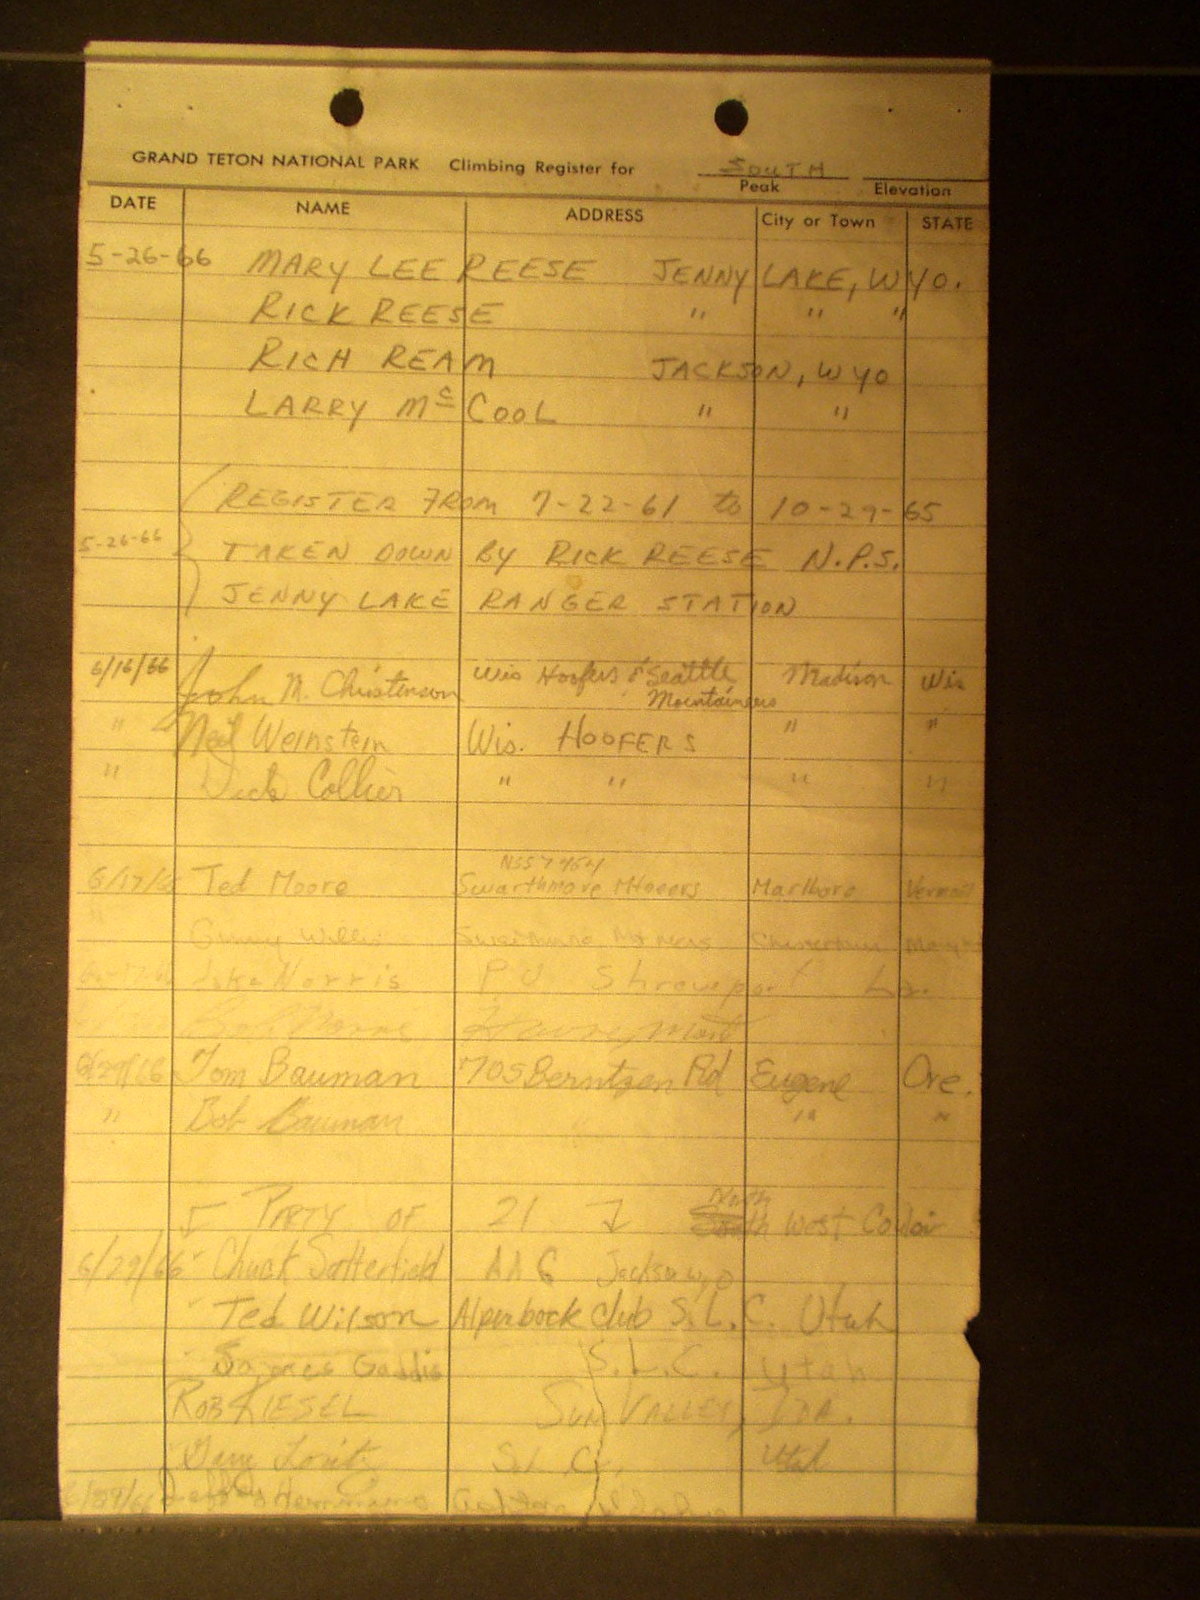 GRAND TETON NATIONAL PARK Climbing Register for SOUTH
Peak Elevation
DATE NAME ADDRESS City or Town STATE
5-26-66 MARY LEE REESE JENNY LAKE, WYO.
RICK REESE " " "
RICH REAM JACKSON, WYO
LARRY McCOOL " "
REGISTER FROM 7-22-61 to 10-29-65
5-26-66 TAKEN DOWN BY RICK REESE N.P.S.
JENNY LAKE RANGER STATION
6/16/66 John M. Christenson Wis Hoofers & Seattle Mountaineers Madison Wis
" Neil Weinstein Wis. HOOFERS " "
" Dick Collier " " " "
NSS 7464
6/17/66 Ted Moore Swarthmore Marlboro Vermont
" Willis Swarthmore
Norris Shreveport La.
6/29/66 Tom Bauman 705 Berntzen Rd Eugene Ore.
" Bob Bauman " " "
PARTY OF 21 North West Couloir
6/29/66 Chuck Satterfield AAC Jackson Wyo
Ted Wilson Alpenbock Club S.L.C. Utah
Gaddis S.L.C. Utah
ROB KIESEL SUN VALLEY, IDA.
S.L.C. Utah